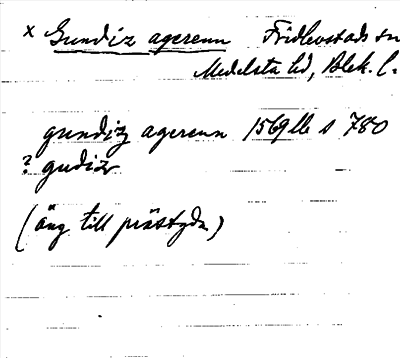 x Gundiz agerenn Fridlevstads sn
Medelsta hd, Blek. l.
gundiz agerenn 1569 lb s 780
? gudiz
(äng till prästgdn)